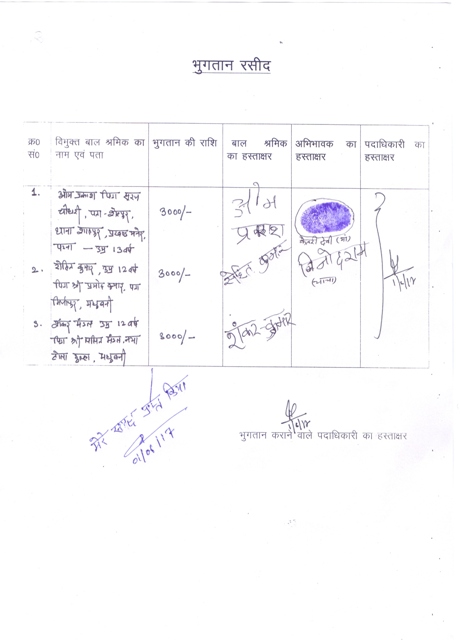 भुगतान रसीद
क्र०
सं०
विमुक्त बाल श्रमिक का
नाम एवं पता
भुगतान की राशि
बाल श्रमिक
का हस्ताक्षर
अभिभावक का
हस्ताक्षर
पदाधिकारी का
हस्ताक्षर
1.
ओम प्रकाश पिता
चौधरी, ग्राम
थाना
पटना — उम्र 13 वर्ष
3000/-
ओम
प्रकाश
देवी (मां)
2.
रोहित कुमार, उम्र 12 वर्ष
पिता श्री प्रमोद
मधुबनी
3000/-
रोहित कुमार
विनोद राम
(चाचा)
3.
शंकर मंडल उम्र 12 वर्ष
पिता श्री मंडल
मधुबनी
3000/-
शंकर-कुमार
मेरे समक्ष प्राप्त किया
01/06/17
भुगतान कराने वाले पदाधिकारी का हस्ताक्षर